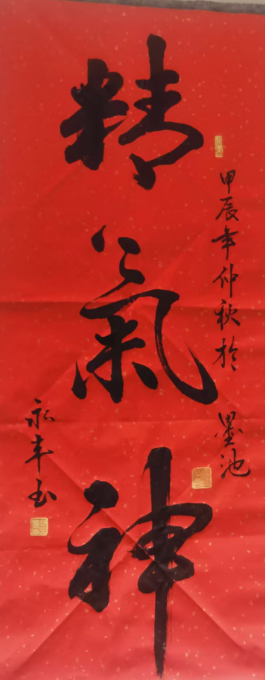 精氣神
甲辰年仲秋於墨池
永丰书